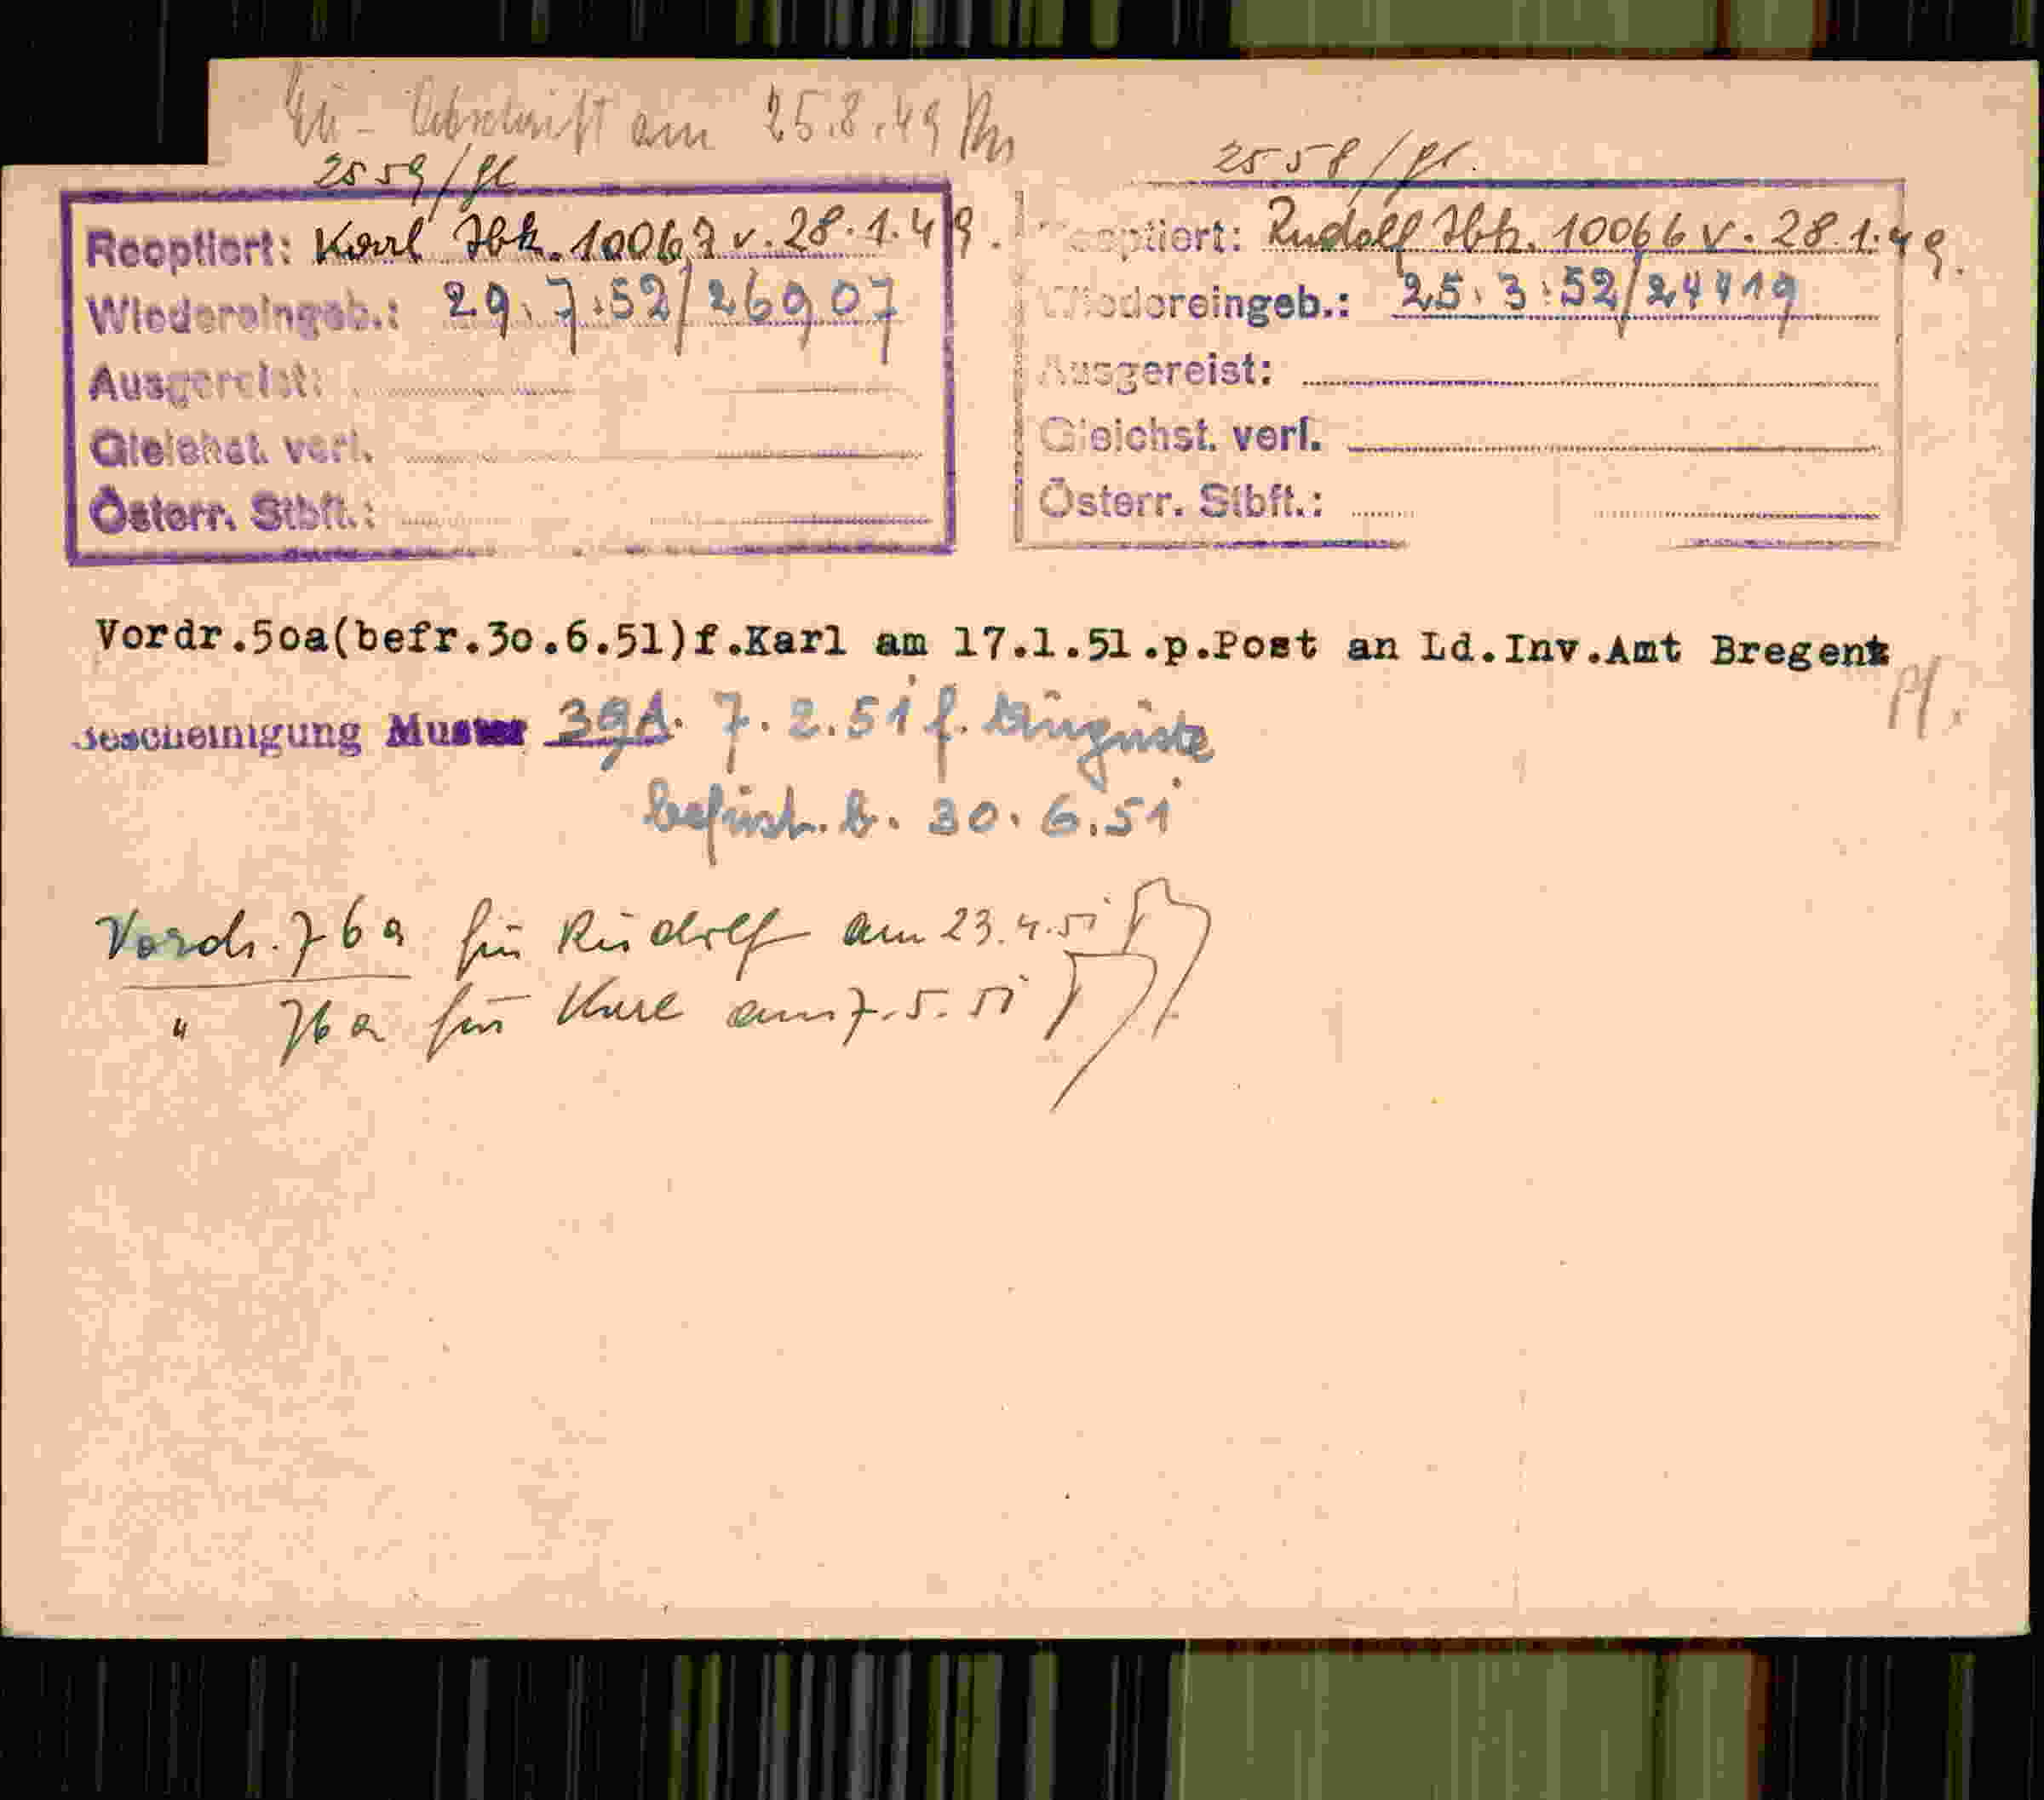 Abschrift am 25.8.49
2559/
Reoptiert: Karl Ibk. 10067 v. 28.1.49.
Wiedereingeb.: 29.7.52/26907
Ausgereist:
Gleichst. verl.
Österr. Stbft.:
2558/
Reoptiert: Rudolf Ibk. 10066 v. 28.1.49.
Wiedereingeb.: 25.3.52/24419
Ausgereist:
Gleichst. verl.
Österr. Stbft.:
Vordr.5oa(befr.3o.6.51)f.Karl am 17.1.51.p.Post an Ld.Inv.Amt Bregenz
Bescheinigung Muster 39A. 7.2.51 f. Auguste
befrist. b. 30.6.51
Vordr. 76a für Rudolf am 23.4.51
" 76a für Karl am 7.5.51